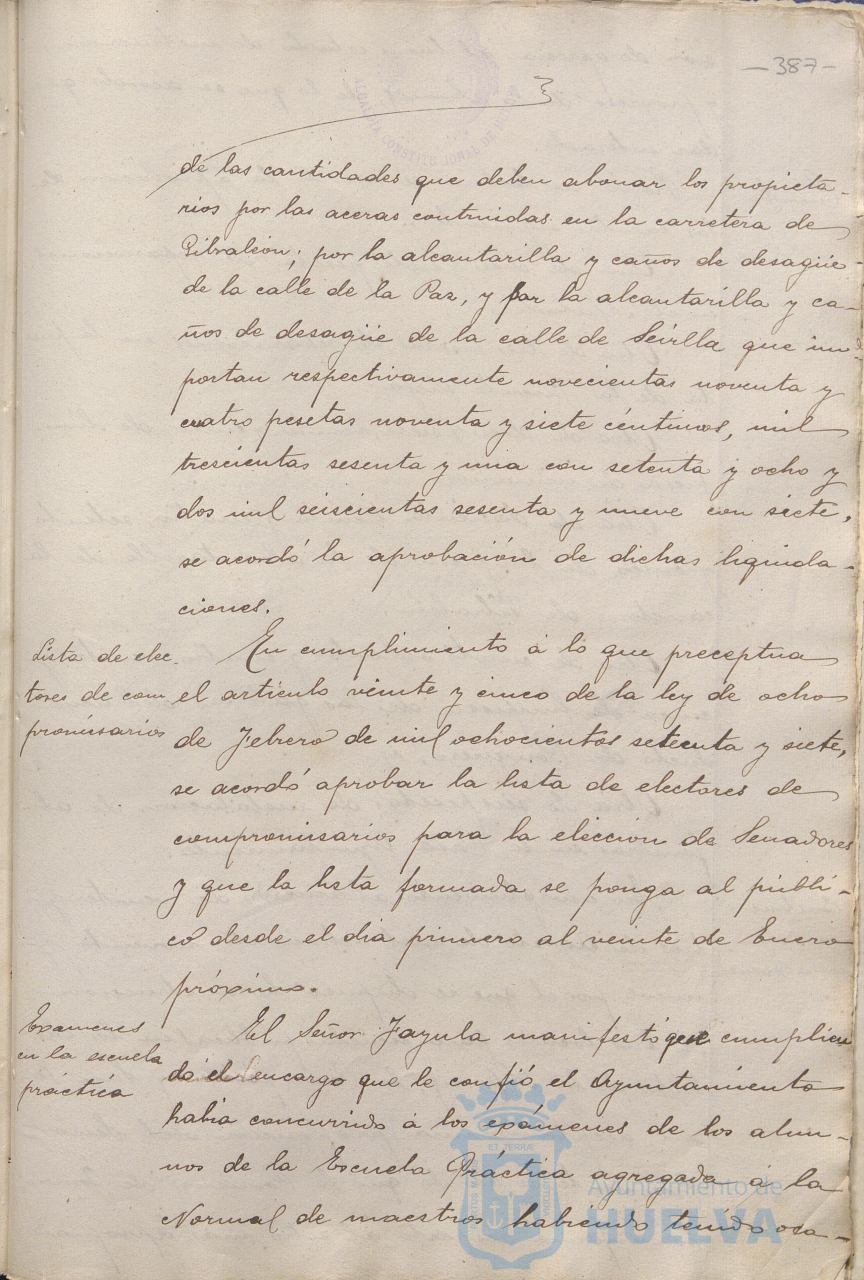 -387-
de las cantidades que deben abonar los propieta-
rios por las aceras contruidas en la carretera de
Gibraleón; por la alcantarilla y caños de desagüe
de la calle de la Paz, y por la alcantarilla y ca-
ños de desagüe de la calle de Sevilla que im-
portan respectivamente novecientas noventa y
cuatro pesetas noventa y siete céntimos, mil
trescientas sesenta y una con setenta y ocho y
dos mil seiscientas sesenta y nueve con siete,
se acordó la aprobación de dichas liquida-
ciones.
Lista de elec-
tores de com
promisarios
En cumplimiento á lo que preceptua
el artículo veinte y cinco de la ley de ocho
de Febrero de mil ochocientos setenta y siete,
se acordó aprobar la lista de electores de
compromisarios para la elección de Senadores
y que la lista formada se ponga al públi-
co desde el dia primero al veinte de Enero
próximo.
Exámenes
en la escuela
práctica
El Señor Jazula manifestó que cumplien
do el encargo que le confió el Ayuntamiento
habia concurrido á los exámenes de los alum-
nos de la Escuela Práctica agregada á la
Normal de maestros habiendo tenido oca-
Ayuntamiento de
HUELVA